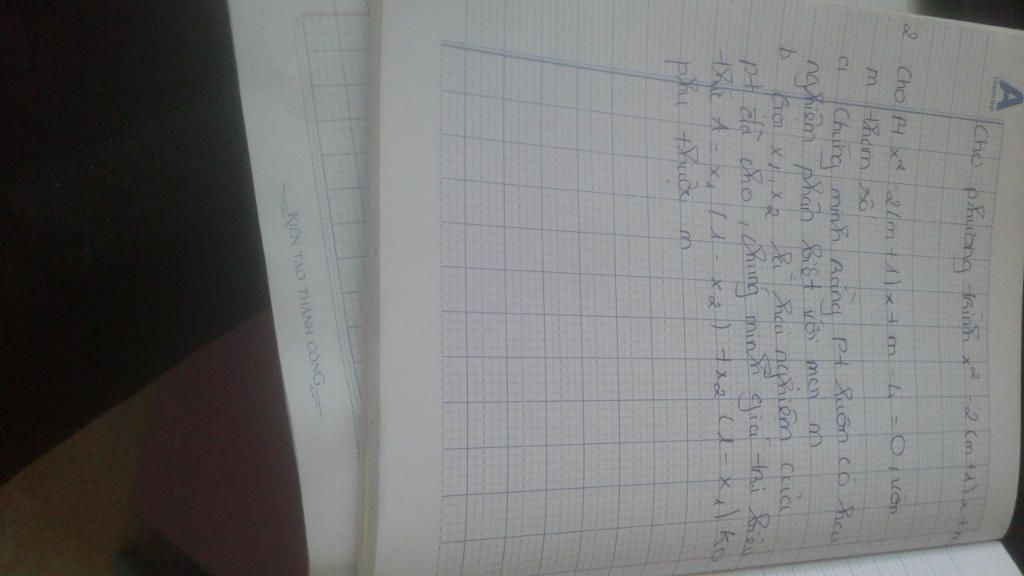 Cho phương trình x² - 2(m+1)x+
2 Cho pt x² - 2(m+1)x+m-4=0, với
m tham số
a Chứng minh rằng pt luôn có hai
nghiệm phân biệt với mọi m
b Gọi x1, x2 là hai nghiệm của
pt đã cho, chứng minh giá trị biểu
thức A = x1(1-x2)+x2(1-x1) ko
phụ thuộc m
A
KIẾN TẠO THÀNH CÔNG